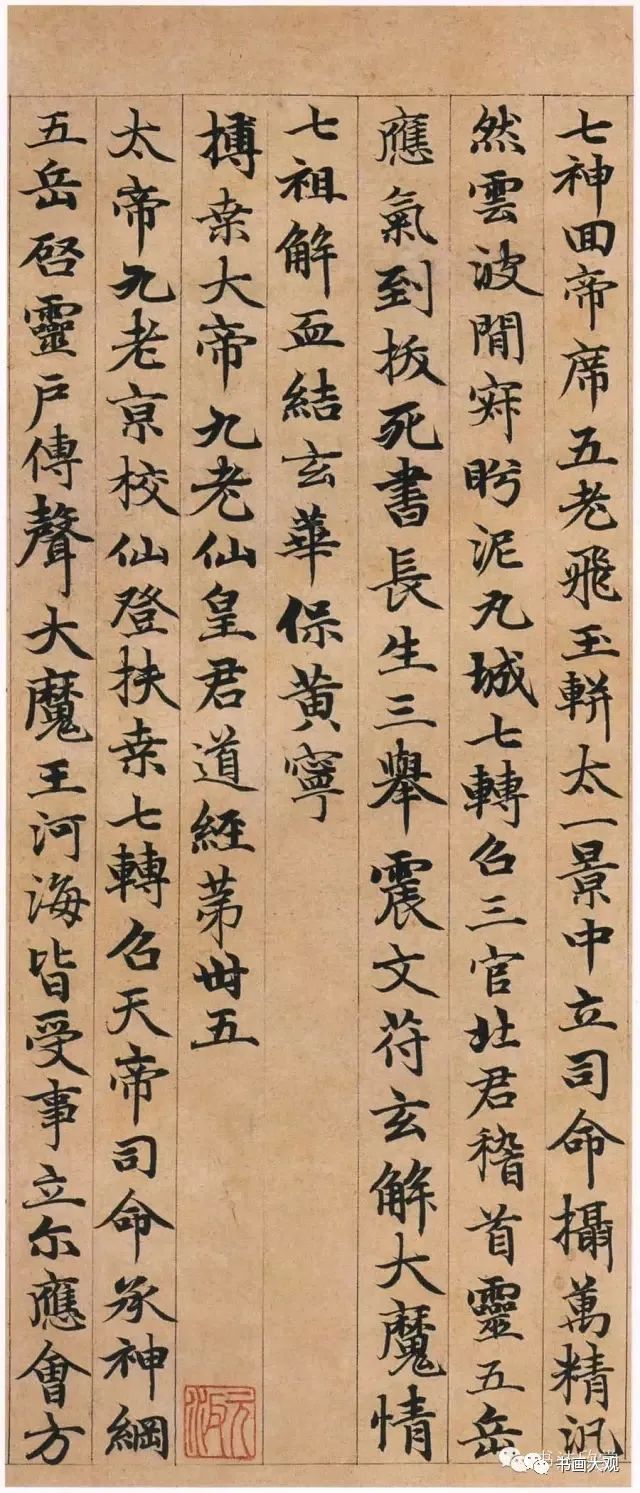 七神回帝席五老飛玉軿太一景中立司命攝萬精汎
然雲波間寂眄泥丸城七轉召三官北君稽首靈五岳
應氣到拔死書長生三舉震文苻玄解大魔情
七祖解血結玄華保黄寧
搏桒大帝九老仙皇君道經苐卌五
太帝九老京校仙登扶桒七轉召天帝司命承神綱
五岳啓靈戶傳聲大魔王河海皆受事立尒應會方
书画大观